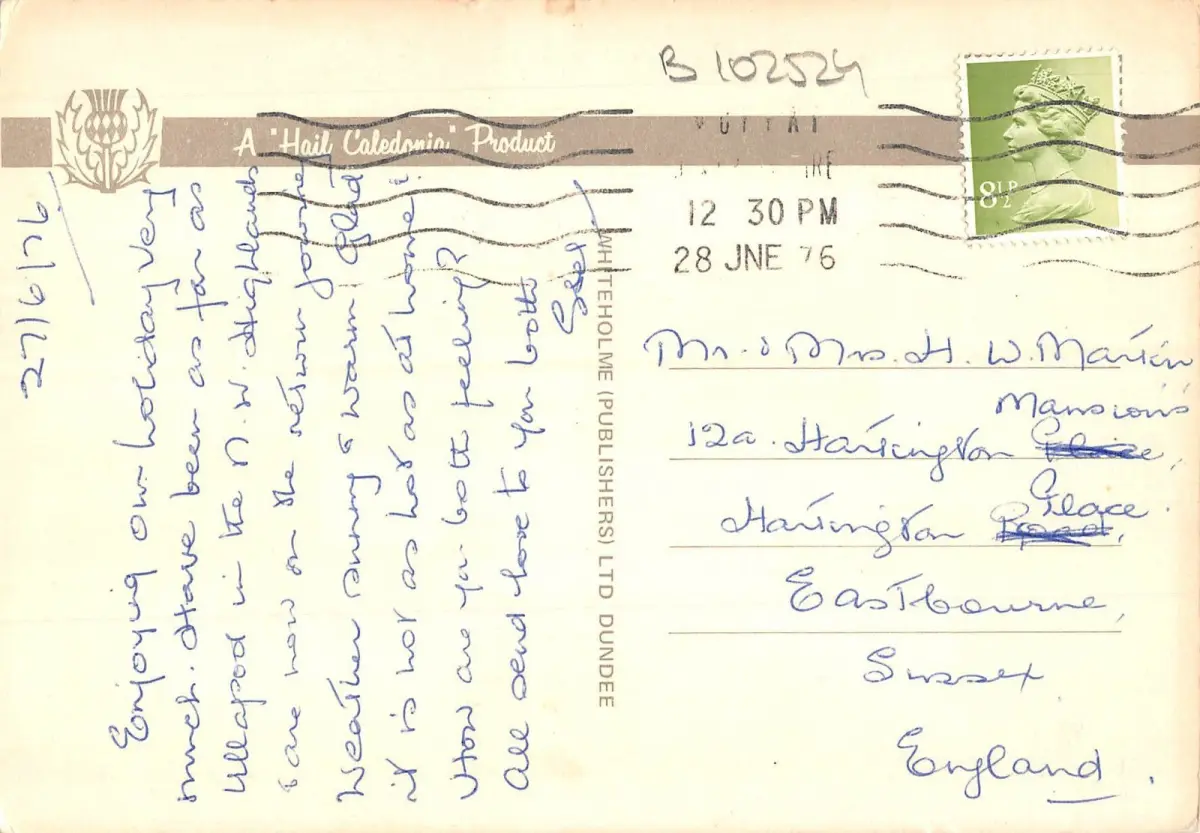 B 102524
A "Hail Caledonia" Product
12 30 PM
28 JNE 76
8½P
27/6/76
Enjoying our holiday very
much. Have been as far as
Ullapool in the N.W. Highlands
& are now on the return journey
Weather sunny & warm! Glad
it is not as hot as at home!
How are you both feeling?
All send love to you both
WHITEHOLME (PUBLISHERS) LTD DUNDEE
Mr. & Mrs. H. W. Martin
12a. Hartington Mansions
Hartington Place.
Eastbourne,
Sussex
England.